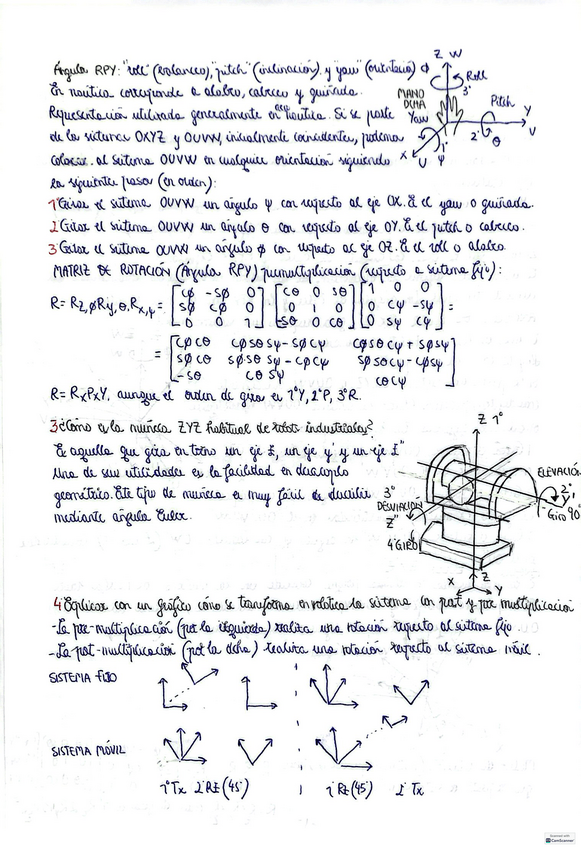 Ángulo RPY: "roll" (balanceo), "pitch" (inclinación) y "yaw" (orientació)
En naútica corresponde a alabeo, cabeceo y guiñada.
Representación utilizada generalmente en aeronaútica. Si se parte
de los sistemas OXYZ y OUVW, inicialmente coincidentes, podemos
colocar al sistema OUVW en cualquier orientación siguiendo
los siguientes pasos (en orden):
Z W
Roll
3º
MANO
DCHA
Yaw
Pitch
Y
V
2º θ
1º
X
U ψ
1º Girar el sistema OUVW un ángulo ψ con respecto al eje OX. Es el yaw o guiñada.
2º Girar el sistema OUVW un ángulo θ con respecto al eje OY. Es el pitch o cabeceo.
3º Girar el sistema OUVW un ángulo φ con respecto al eje OZ. Es el roll o alabeo
MATRIZ DE ROTACIÓN (Ángulos RPY) premultiplicación (respecto a sistema fijo):
R= Rz,φ Ry,θ Rx,ψ = [cφ -sφ 0] [cθ 0 sθ] [1 0 0] =
[sφ cφ 0] [0 1 0] [0 cψ -sψ]
[0 0 1] [-sθ 0 cθ] [0 sψ cψ]
= [cφcθ cφsθsψ-sφcψ cφsθcψ+sφsψ]
[sφcθ sφsθsψ-cφcψ sφsθcψ-cφsψ]
[-sθ cθsψ cθcψ]
R= RxPxY, aunque el orden de giros es 1ºY, 2ºP, 3ºR.
3 ¿Cómo es la muñeca ZYZ habitual de robots industriales?
Es aquella que gira en torno un eje z, un eje y' y un eje z''
Una de sus utilidades es la facilidad en desacoplo
geométrico. Este tipo de muñeca es muy fácil de describir
mediante ángulos Euler.
Z 1º
ELEVACIÓN
2º
Y'
Giro 90º
3º
DESVIACIÓN
Z''
4º GIRO
Z
X
Y
4 Explicar con un gráfico cómo se transforma en robótica los sistemas con post y pre multiplicación
- La pre-multiplicación (por la izquierda) realiza una rotación respecto al sistema fijo.
- La post-multiplicación (por la dcha) realiza una rotación respecto al sistema móvil.
SISTEMA FIJO
SISTEMA MÓVIL
1º Tx 2º RZ(45º)
1º RZ(45º) 2º Tx
Scanned with
CamScanner